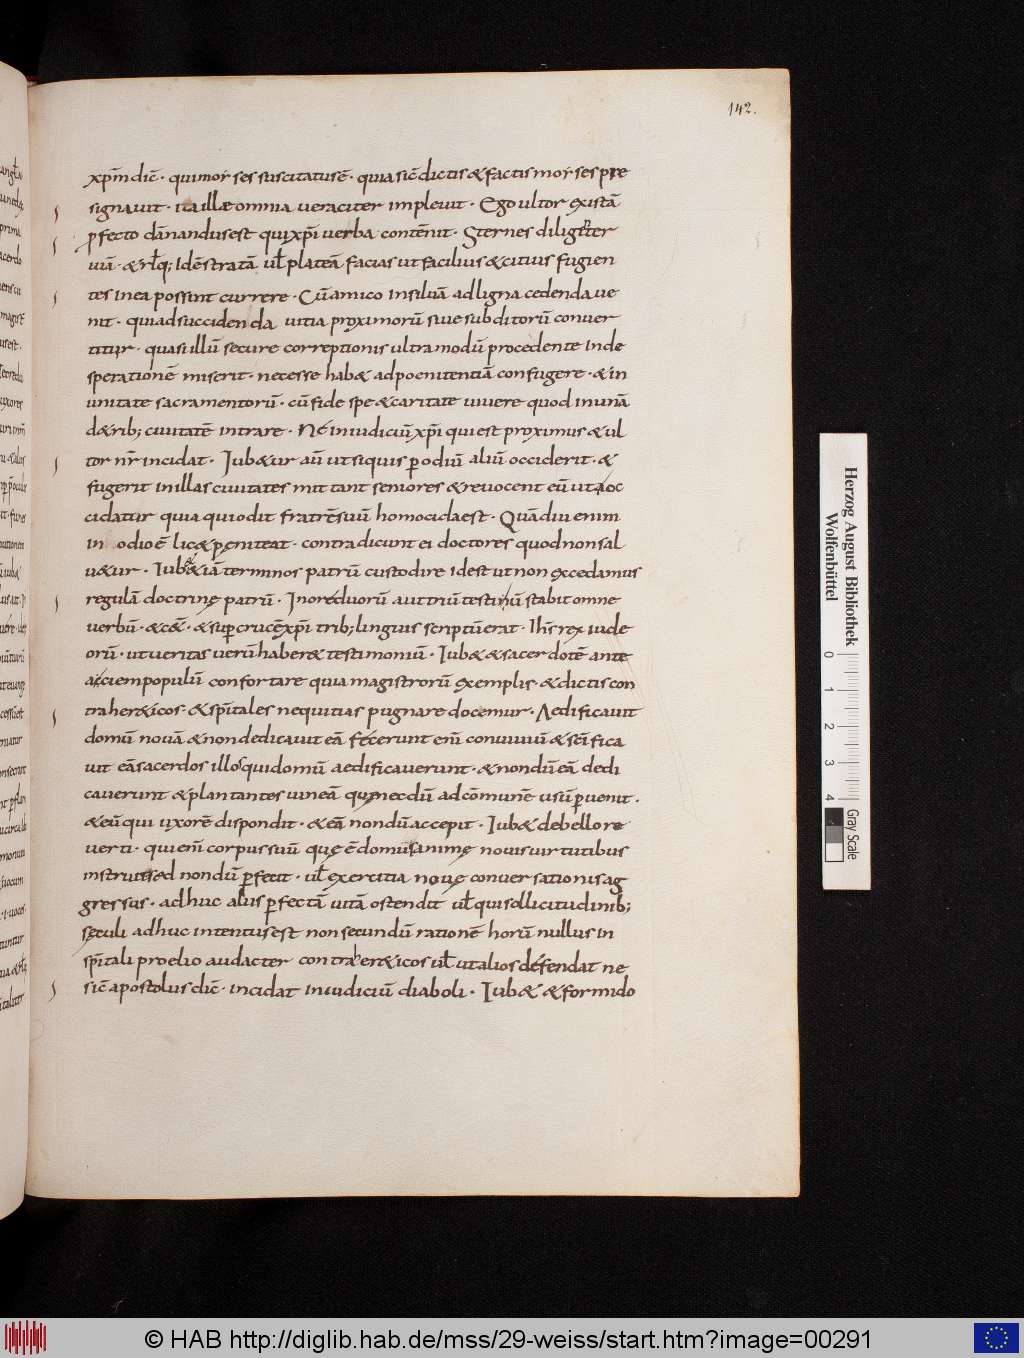 142.
xp̄m dic̄· qui mor ses suscitatus ē· quia sic̄ dictis & factis mor ses pre
signauit· ita illæ omnia ueraciter impleuit· Ego ultor existā
perfecto dānandus est qui xp̄i uerba contēnit· Sternes diligenter
uiā· & rl̄q; Idē stratā ul̄ plateā facias ut facilius & citius fugien
tes in ea possint currere· Cū amico in siluā ad ligna cedenda ue
nit· qui ad succidenda uitia proximorū siue subditorū conuer
titur· quasi illū secure correptionis ultra modū procedente in de
sperationē miserit· necesse hab& ad poenitentiā confugere· & in
unitate sacramentorū· cū fide spe & caritate uiuere quod in unā
d& rib; ciuitatē intrare· Ne in iudiciū xp̄i qui est proximus & ul
tor nr̄ incidat· Iub&ur aū ut siquis p odiū aliū occiderit· &
fugerit in illas ciuitates mittant seniores & reuocent eū ut oc
cidatur quia qui odit fratrē suū homocida est· Quādiu enim
in odio ē lic& pęniteat· contradicunt ei doctores quod non sal
u&ur· Iub& &iā terminos patrū custodire id est ut non excedamus
regulā doctrinę patrū· In ore duorū aut triū testiū stabit omne
uerbū· & c&̄· & sup crucē xp̄i trib; linguis scriptū erat· Ih̄s rex iude
orū· ut ueritas uerū haber& testimoniū· Iub& & sacerdotē ante
aciem populū confortare quia magistrorū exemplis· & dictis con
traher&icos· & sp̄itales nequitias pugnare docemur· Aedificauit
domū nouā & non dedicauit eā fecerunt enī conuiuiū & scī fica
uit eā sacerdos illos qui domū aedificauerunt· & nondū eā dedi
cauerunt & plantantes uineā quę necdū ad cōmunē usū puenit·
& eū qui uxorē dispondit· & eā nondū accepit· Iub& de bello re
uerti· qui enī corpus suū quę ē domus animę nouis uirtutibus
instruit sed nondū pfecit· ul̄ exercitia nouę conuersationis ag
gressus· adhuc alius pfectā uitā ostendit ul̄ qui sollicitudinib;
sęculi adhuc intentus est non secundū rationē horū nullus in
sp̄itali proelio audacter contra her&icos ul̄ ut alios defendat ne
sic̄ apostolus dic̄· incidat in iudiciū diaboli· Iub& & formido
Herzog August Bibliothek
Wolfenbüttel
0 1 2 3 4
Gray Scale
© HAB http://diglib.hab.de/mss/29-weiss/start.htm?image=00291